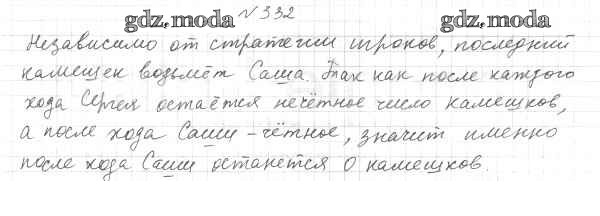 №332
gdz.moda gdz.moda
Независимо от стратегии игроков, последний
камешек возьмёт Саша. Так как после каждого
хода Сергея остаётся нечётное число камешков,
а после хода Саши - чётное, значит именно
после хода Саши останется 0 камешков.